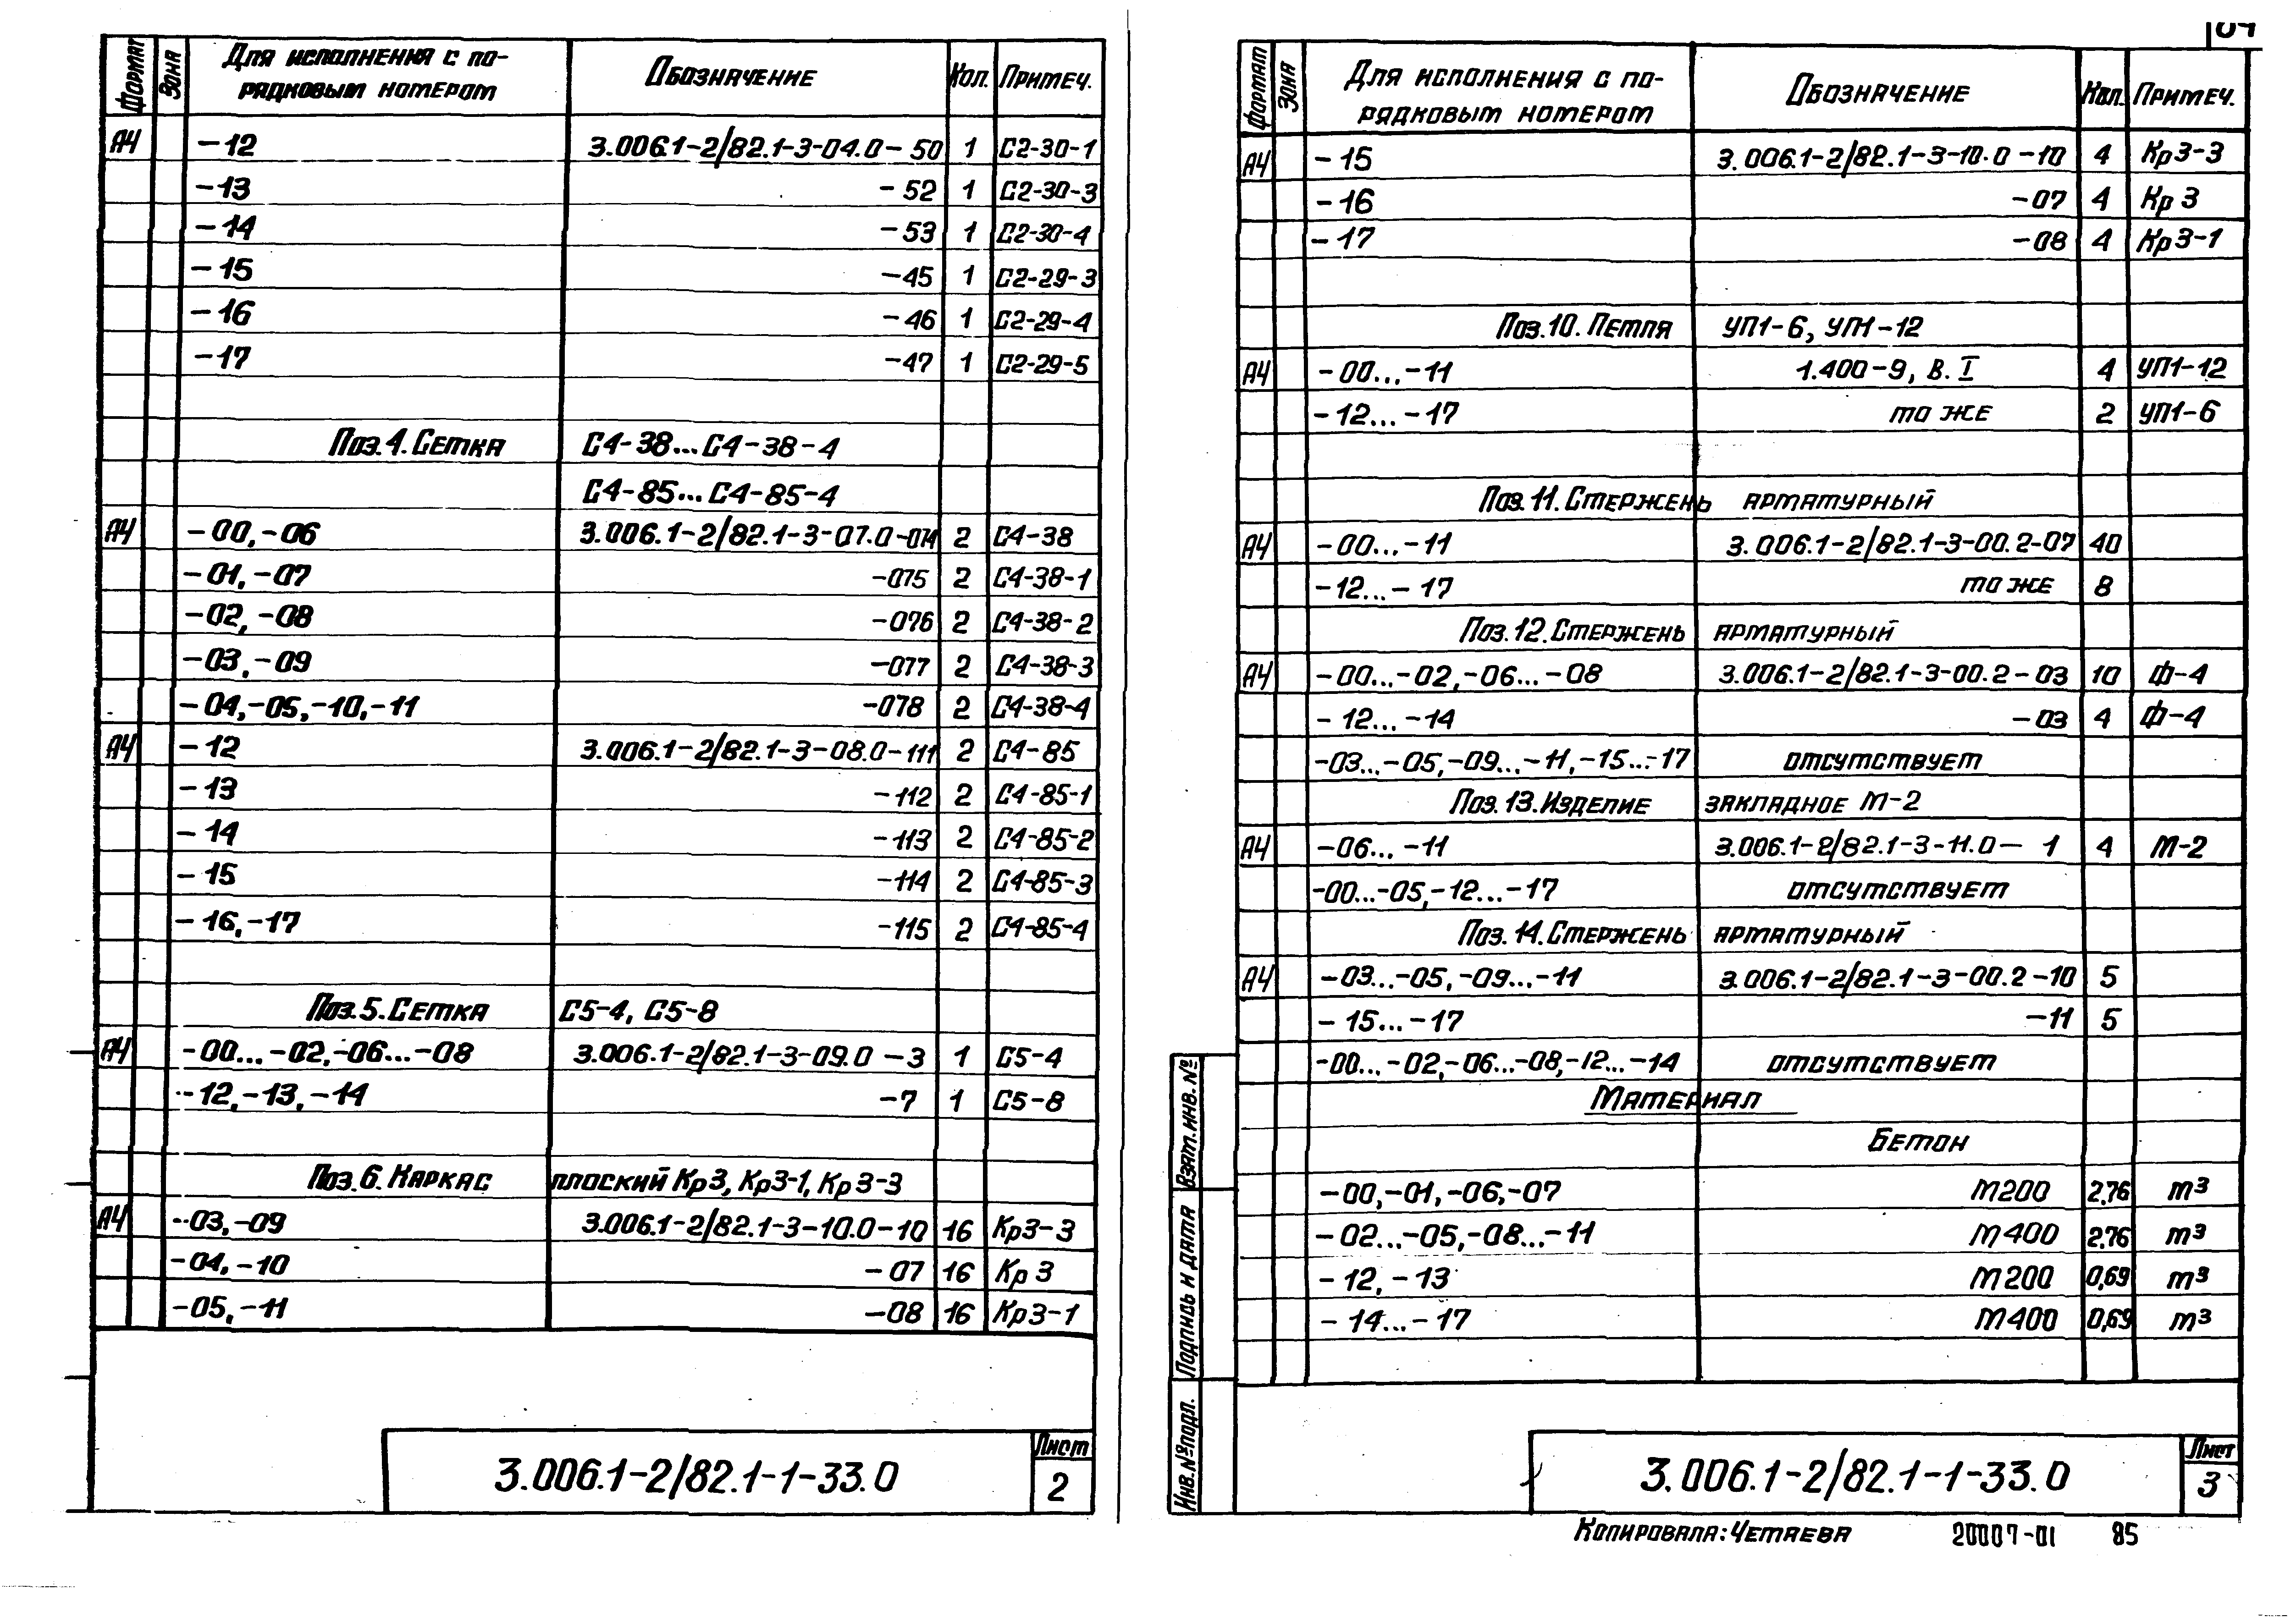 Формат Зона Для исполнения с по- Обозначение Кол. Примеч.
рядковым номером
А4 -12 3.006.1-2/82.1-3-04.0-50 1 С2-30-1
-13 -52 1 С2-30-3
-14 -53 1 С2-30-4
-15 -45 1 С2-29-3
-16 -46 1 С2-29-4
-17 -47 1 С2-29-5
Поз.4.Сетка С4-38...С4-38-4
С4-85...С4-85-4
А4 -00,-06 3.006.1-2/82.1-3-07.0-074 2 С4-38
-01,-07 -075 2 С4-38-1
-02,-08 -076 2 С4-38-2
-03,-09 -077 2 С4-38-3
-04,-05,-10,-11 -078 2 С4-38-4
А4 -12 3.006.1-2/82.1-3-08.0-111 2 С4-85
-13 -112 2 С4-85-1
-14 -113 2 С4-85-2
-15 -114 2 С4-85-3
-16,-17 -115 2 С4-85-4
Поз.5.Сетка С5-4, С5-8
А4 -00...-02,-06...-08 3.006.1-2/82.1-3-09.0-3 1 С5-4
-12,-13,-14 -7 1 С5-8
Поз.6.Каркас плоский Кр3, Кр3-1, Кр3-3
А4 -03,-09 3.006.1-2/82.1-3-10.0-10 16 Кр3-3
-04,-10 -07 16 Кр3
-05,-11 -08 16 Кр3-1
3.006.1-2/82.1-1-33.0 Лист
2
Формат Зона Для исполнения с по- Обозначение Кол. Примеч.
рядковым номером
А4 -15 3.006.1-2/82.1-3-10.0-10 4 Кр3-3
-16 -07 4 Кр3
-17 -08 4 Кр3-1
Поз.10.Петля УП1-6, УП1-12
А4 -00...-11 1.400-9, В.I 4 УП1-12
-12...-17 то же 2 УП1-6
Поз.11.Стержень арматурный
А4 -00...-11 3.006.1-2/82.1-3-00.2-07 40
-12...-17 то же 8
Поз.12.Стержень арматурный
А4 -00...-02,-06...-08 3.006.1-2/82.1-3-00.2-03 10 Ф-4
-12...-14 -03 4 Ф-4
-03...-05,-09...-11,-15...-17 отсутствует
Поз.13.Изделие закладное М-2
А4 -06...-11 3.006.1-2/82.1-3-11.0-1 4 М-2
-00...-05,-12...-17 отсутствует
Поз.14.Стержень арматурный
А4 -03...-05,-09...-11 3.006.1-2/82.1-3-00.2-10 5
-15...-17 -11 5
-00...-02,-06...-08,-12...-14 отсутствует
Материал
Бетон
-00,-01,-06,-07 М200 2,76 м³
-02...-05,-08...-11 М400 2,76 м³
-12,-13 М200 0,69 м³
-14...-17 М400 0,69 м³
Взят.инв.№
Подпись и дата
Инв.№подл.
3.006.1-2/82.1-1-33.0 Лист
3
Копировала: Четаева 20007-01 85